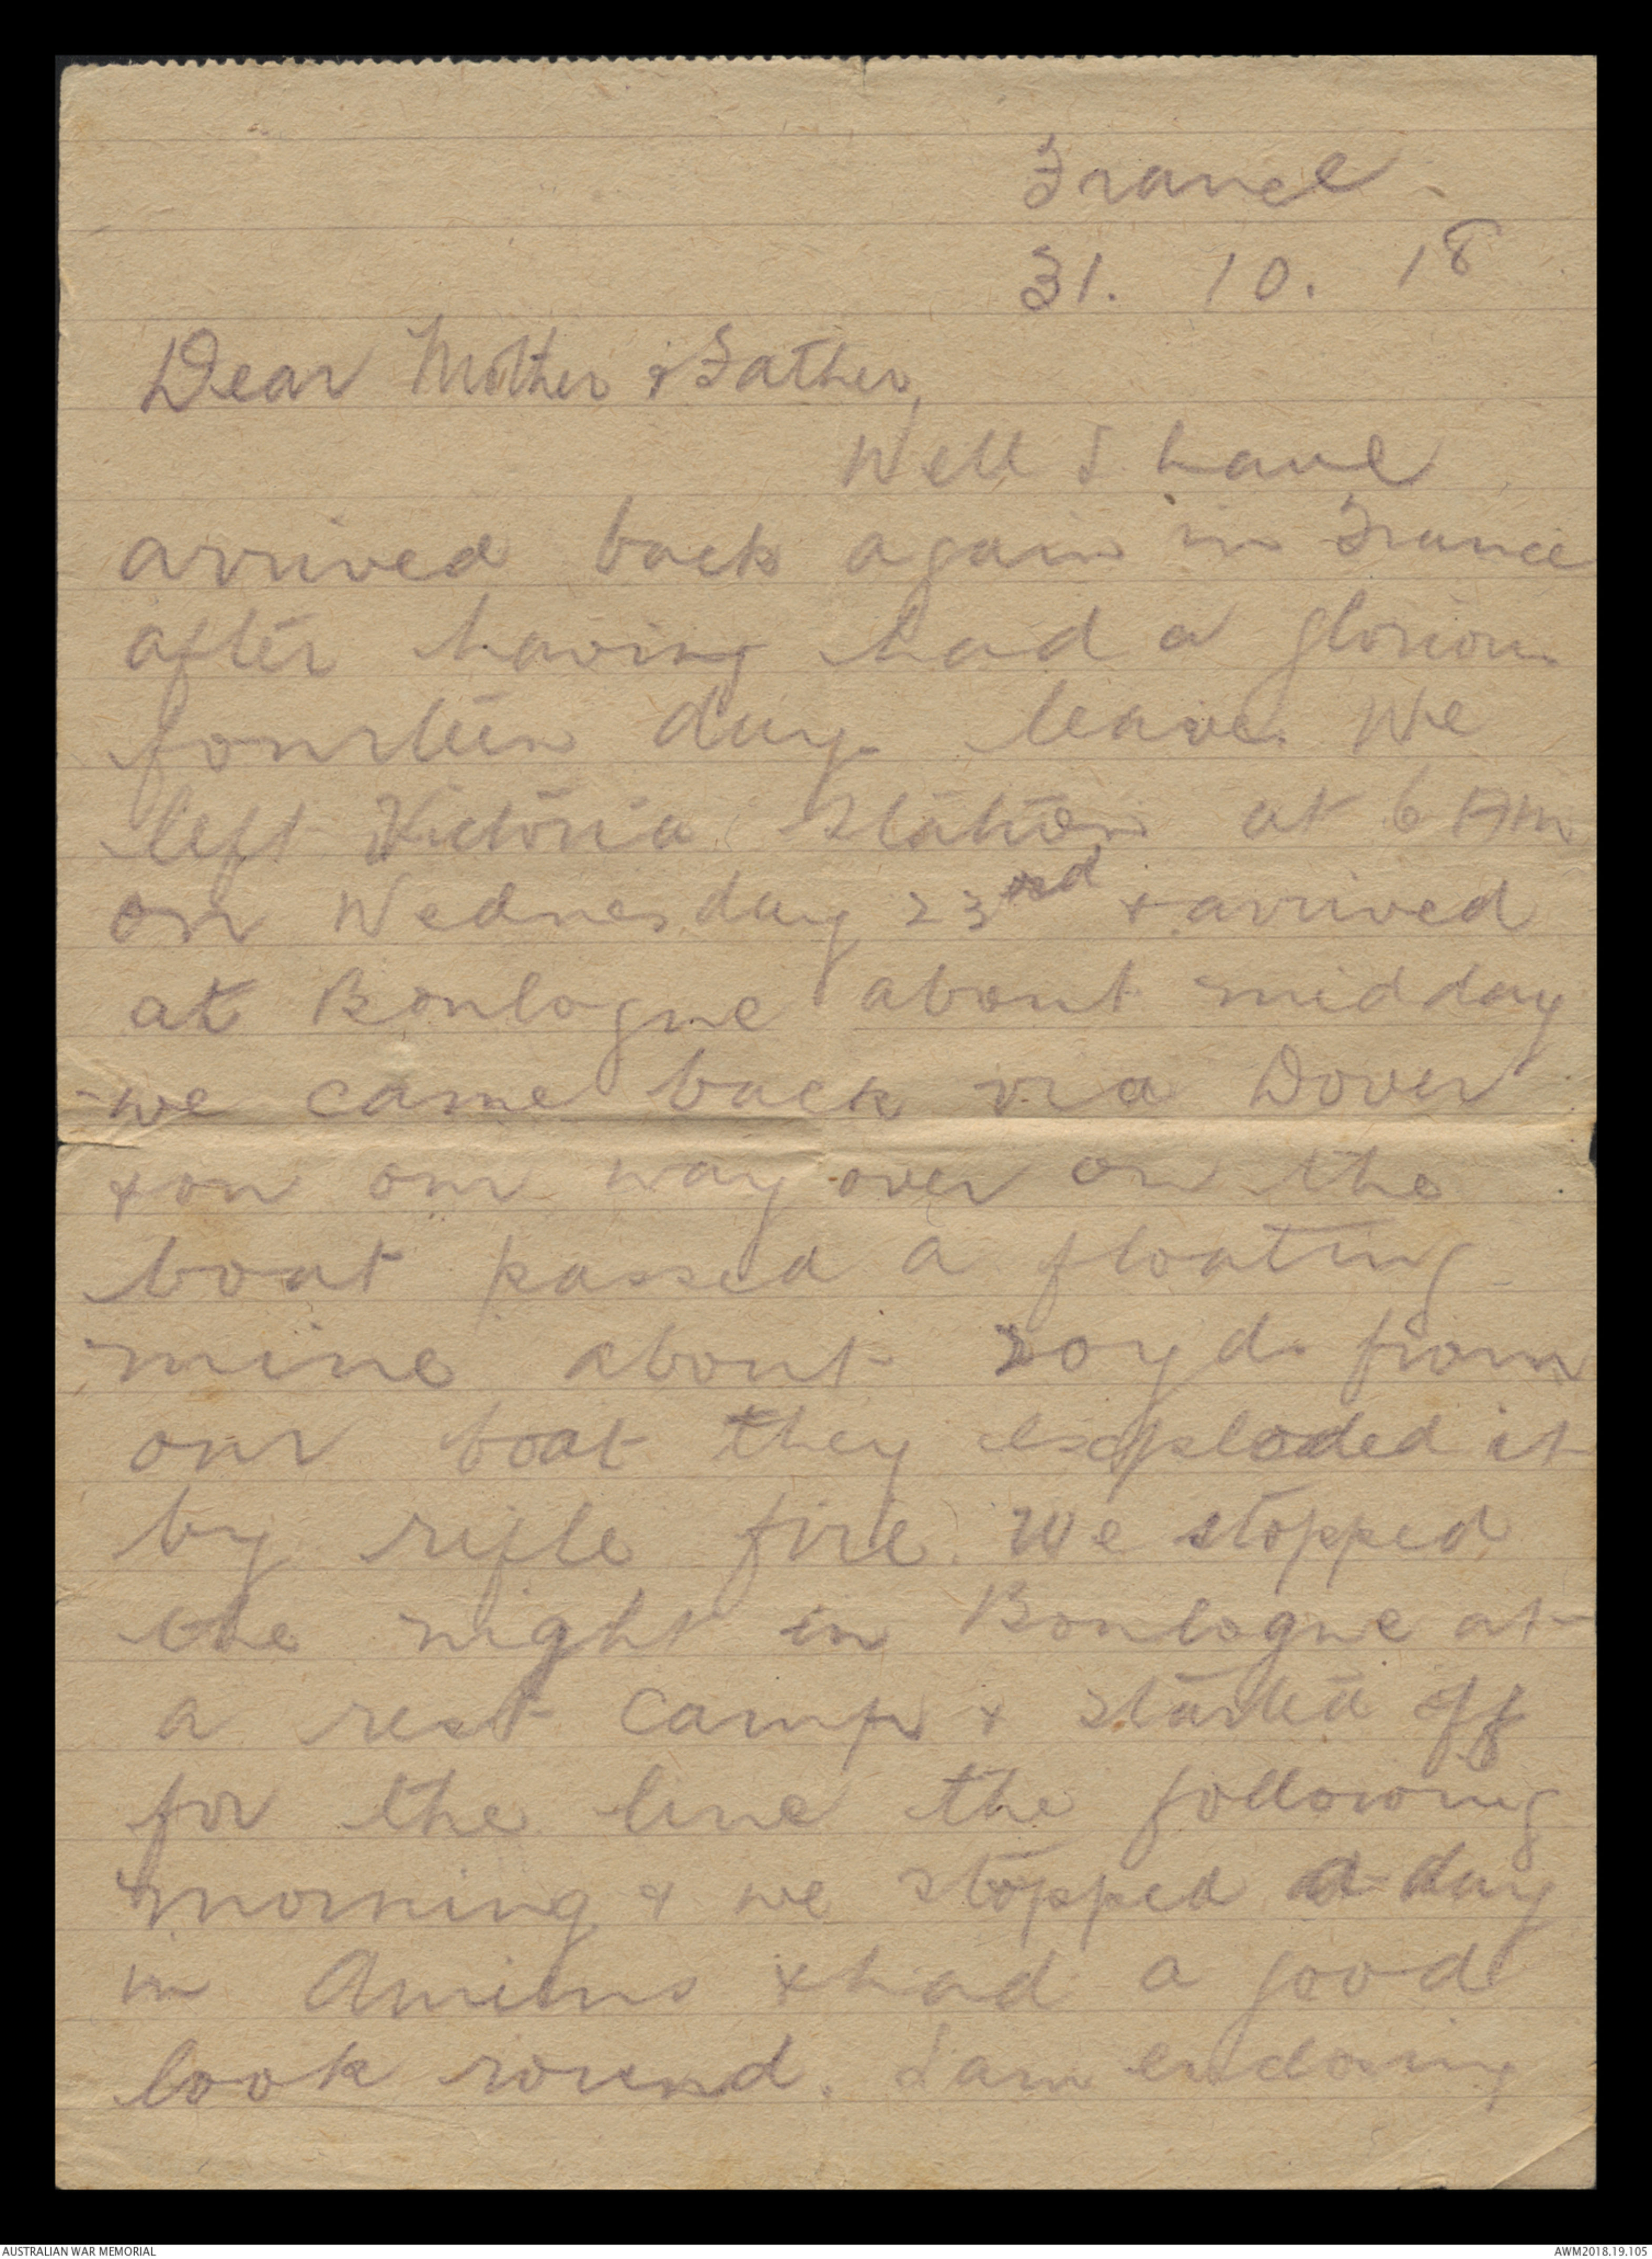 France
31. 10. 18
Dear Mother & Father,
Well I have
arrived back again in France
after having had a glorious
fourteen days leave. We
left Victoria Station at 6 AM
on Wednesday 23rd & arrived
at Boulogne about midday
we came back via Dover
& on our way over on the
boat passed a floating
mine about 20 yds from
our boat they exploded it
by rifle fire. We stopped
the night in Boulogne at
a rest camp & started off
for the line the following
morning & we stopped a day
in Amiens & had a good
look round. I am enclosing
AUSTRALIAN WAR MEMORIAL
AWM2018.19.105